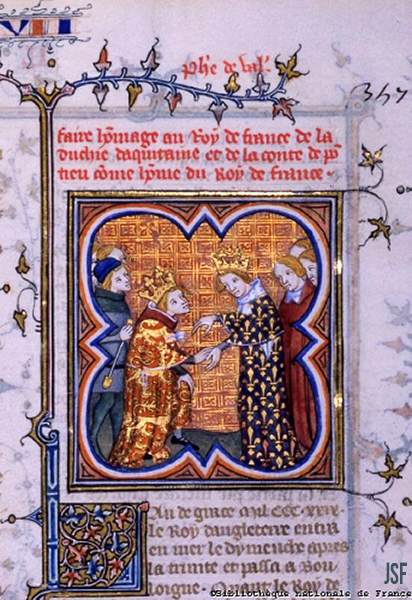 VII
phe de val'.
347
faire homage au Roy de france de la
duchie daquitaine et de la conte de po
tieu come home du Roy de france.
An de grace mil CCC XXIX.
le Roy dangleterre entra
en mer le dymenche apres
la trinite et passa a Bou
loigne. Quant le Roy de
JSF
©Bibliothèque nationale de France